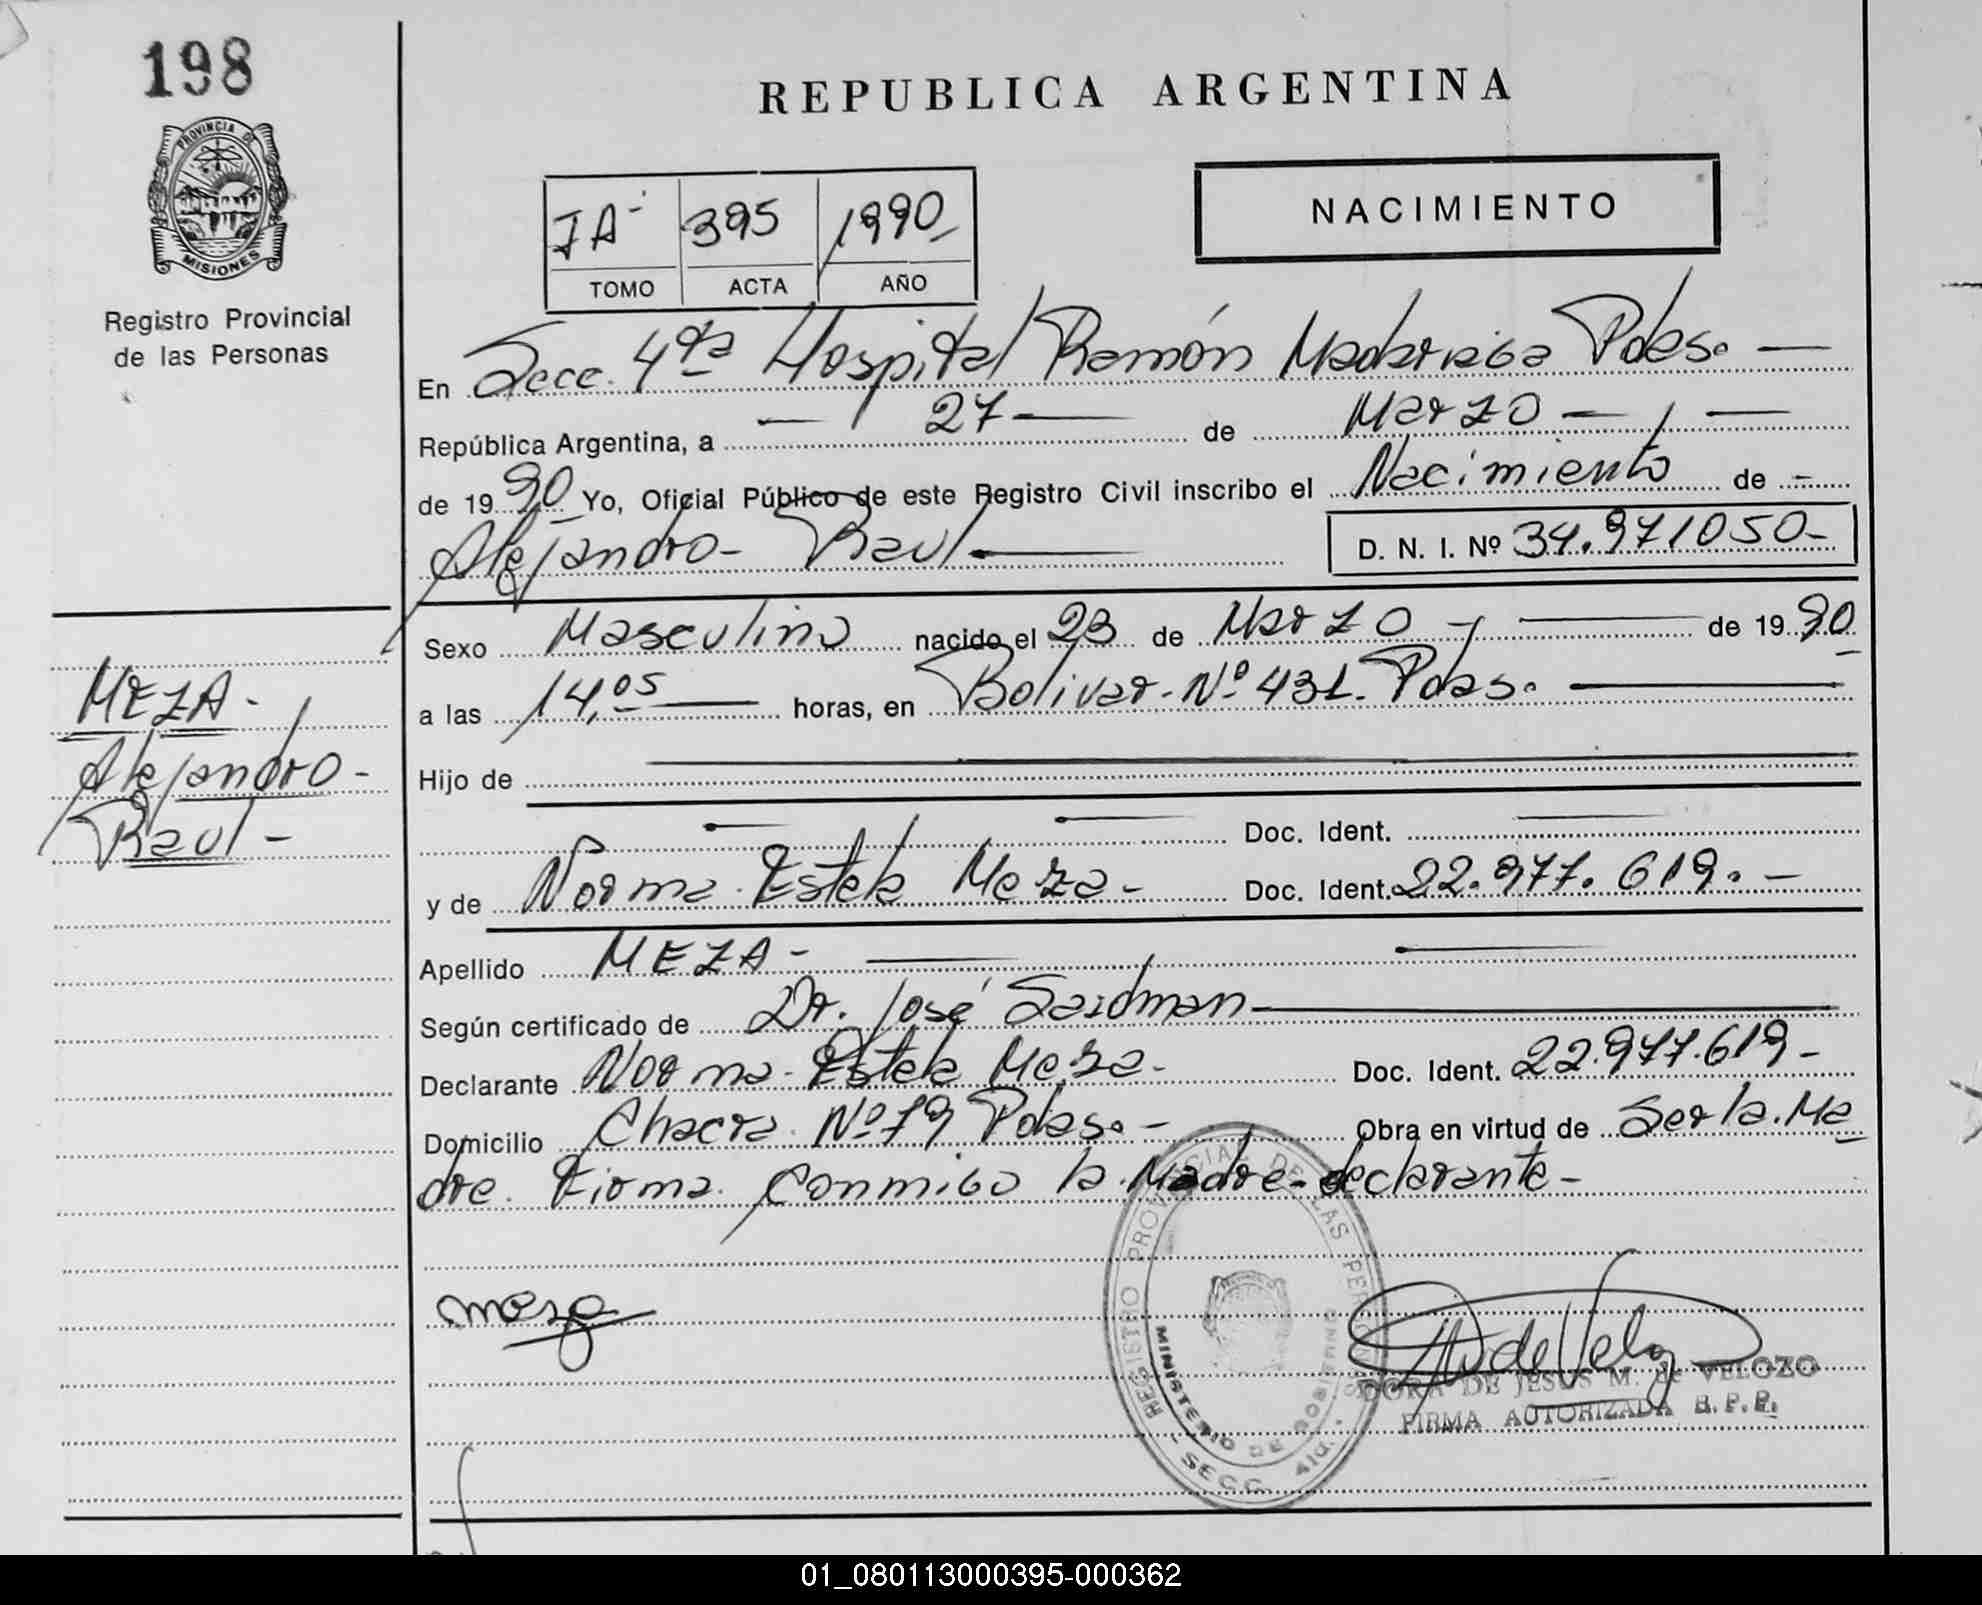 198
REPUBLICA ARGENTINA
PROVINCIA DE
MISIONES
Registro Provincial
de las Personas
NACIMIENTO
IA- 395 1990
TOMO ACTA AÑO
En Secc. 4ta Hospital Ramón Madariaga Pdas. —
República Argentina, a — 27 — de Marzo —
de 1990 Yo, Oficial Público de este Registro Civil inscribo el Nacimiento de -
Alejandro - Raul - D. N. I. Nº 34.971050-
Sexo Masculino nacido el 23 de Marzo — de 1990
a las 14,05 horas, en Bolivar - Nº 431. Pdas. —
Hijo de
Doc. Ident.
y de Norma Estela Meza - Doc. Ident. 22.977.619. -
Apellido MEZA -
Según certificado de Dr. José Saidman
Declarante Norma Estela Meza - Doc. Ident. 22.977.619 -
Domicilio Chacra Nº 79 Pdas. - Obra en virtud de Ser la Ma
dre. Firma Conmigo la Madre declarante -
MEZA -
Alejandro -
Raul -
meza
REGISTRO PROVINCIAL DE LAS PERSONAS
MINISTERIO DE GOBIERNO
SECC. 4ta.
DORA DE JESUS M. de VELOZO
FIRMA AUTORIZADA R. P. P.
01_080113000395-000362